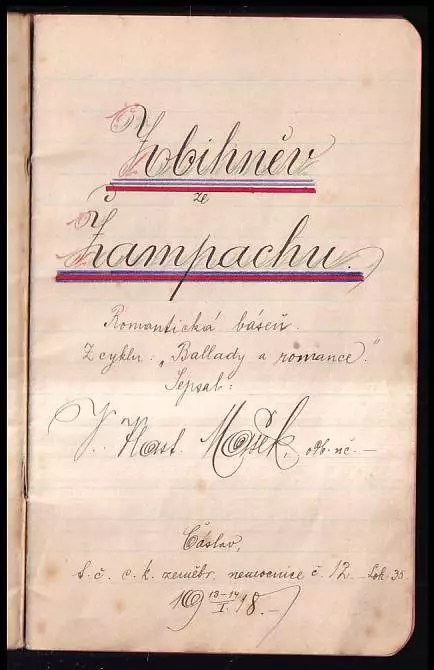 Zobihněv
ze
Žampachu.
Romantická báseň.
Z cyklu: „Ballady a romance."
Sepsal:
J. Vlast. Mašek,
Čáslav,
t. č. c. k. zeměbr. nemocnice č. 12. Lok. 35.
19 13-14/I. 18.